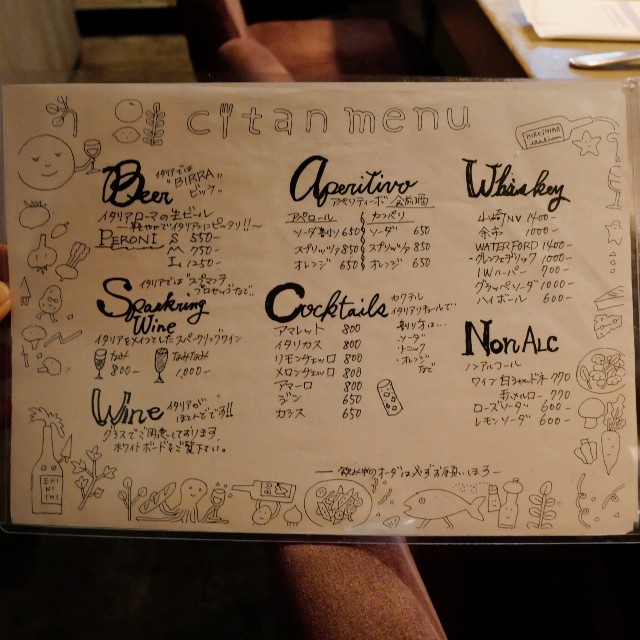 citan menu
HIROSHIMA
Beer
イタリアでは
"BIRRA"
ビッラ
イタリアローマの生ビール
〜軽やかでイタリアにピッタリ!!〜
PERONI S 550-
M 750
L 1250-
Sparkring
Wine
イタリアでは スプマンテ
イタリアをメインとしたスパークリングワイン
なみ 800-
なみなみ 1,000-
Wine
グラスでご用意しております
ホワイトボードをご覧下さい。
Aperitivo
アペリティーボ 食前酒
アペロール
ソーダ割り 650
スプリッツァ 850
オレンジ 650
カンパリ
ソーダ 650
スプリッツァ 850
オレンジ 650
Cocktails
カクテル
イタリアリキュールで
割り方は…
ソーダ
トニック
オレンジ
など
アマレット 800
イタリカス 800
リモンチェッロ 800
メロンチェッロ 800
アマーロ 800
ジン 650
カシス 650
Whiskey
山崎NV 1400-
余市 1000-
WATERFORD 1400-
グレンフェデリック 1000-
I.W.ハーパー 700-
グラッパソーダ 1000-
ハイボール 600-
Non Alc
ノンアルコール
ワイン 白 シャルドネ 770
赤 メルロー 770
ローズソーダ 600-
レモンソーダ 600-